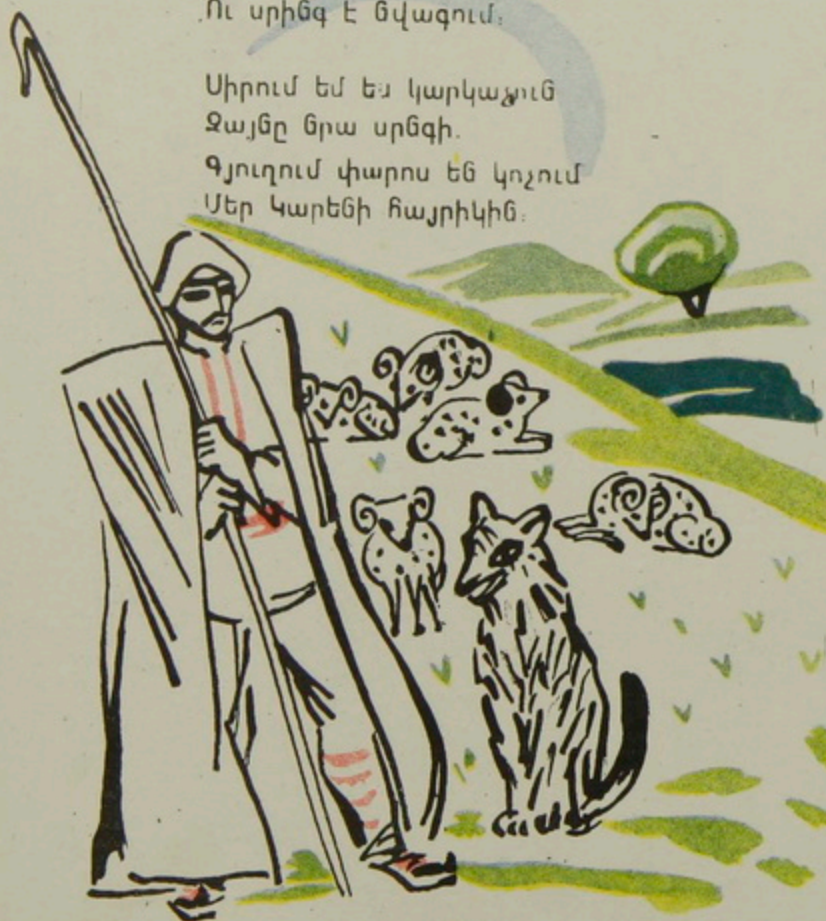 Ու սրինգ է նվագում։
Սիրում եմ ես կարկաչուն
Ձայնը նրա սրնգի.
Գյուղում փարոս են կոչում
Մեր Կարենի հայրիկին։